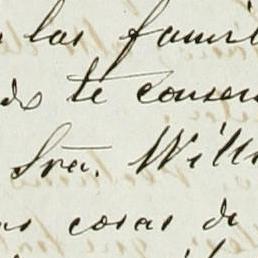 las famil
te conser
Sra. Will
cosas de